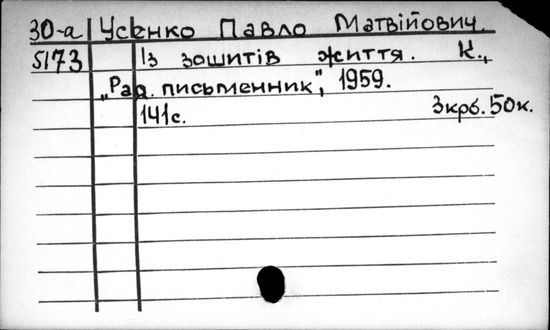 30-а Усенко Павло Матвійович.
5173 Із зошитів життя. К.,
„Рад. письменник", 1959.
141с. 3крб. 50к.